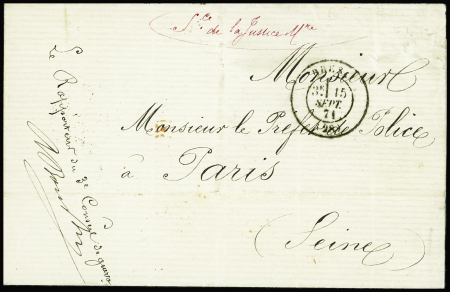 Sce de la Justice Mre
Monsieur
15
SEPT.
71
Monsieur le Préfet de Police
à Paris
(Seine)
Le Rapporteur du 3e Conseil de guerre